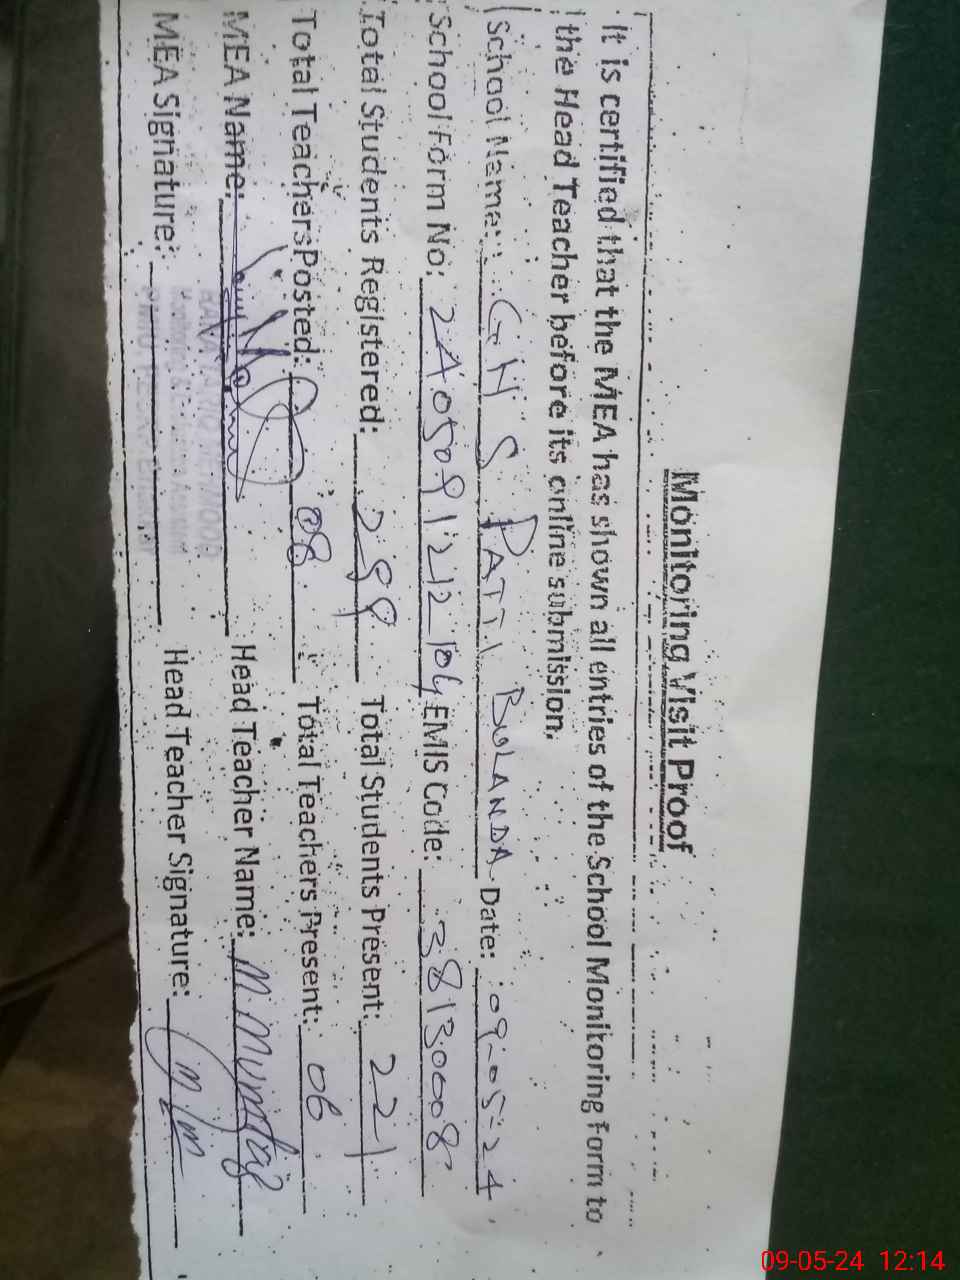 Monitoring Visit Proof
It is certified that the MEA has shown all entries of the School Monitoring form to
the Head Teacher before its online submission.
School Name: GHS PATTI BULANDA Date: 09-05-24
School Form No: EMIS Code: 38130008
Total Students Registered: 299 Total Students Present: 221
Total Teachers Posted: 08 Total Teachers Present: 06
MEA Name: Head Teacher Name: M. Mumtaz
MEA Signature: Head Teacher Signature:
09-05-24 12:14